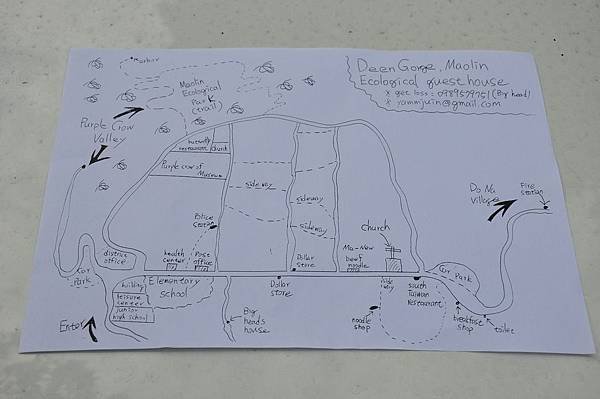 Deen Gorge, Maolin
Ecological guest house
* get loss: 0989579751 (Big head)
* rammjuin@gmail.com
Harbor
Maolin
Ecological
Park
(trail)
Purple Crow
Valley
butterfly
restaurant
church
Purple crow of
Museum
side way
side way
side way
Police
Station
Do Na
village
Fire
station
district
office
health
center
Post
office
Dollar
store
Ma-New
beef
noodle
church
Car Park
Car
Park
building
leisure
center
junior
high school
Elementary
School
Dollar
store
Side
way
South
Taiwan
restaurant
Enter
Big
head's
house
noodle
shop
breakfast
shop
toilet